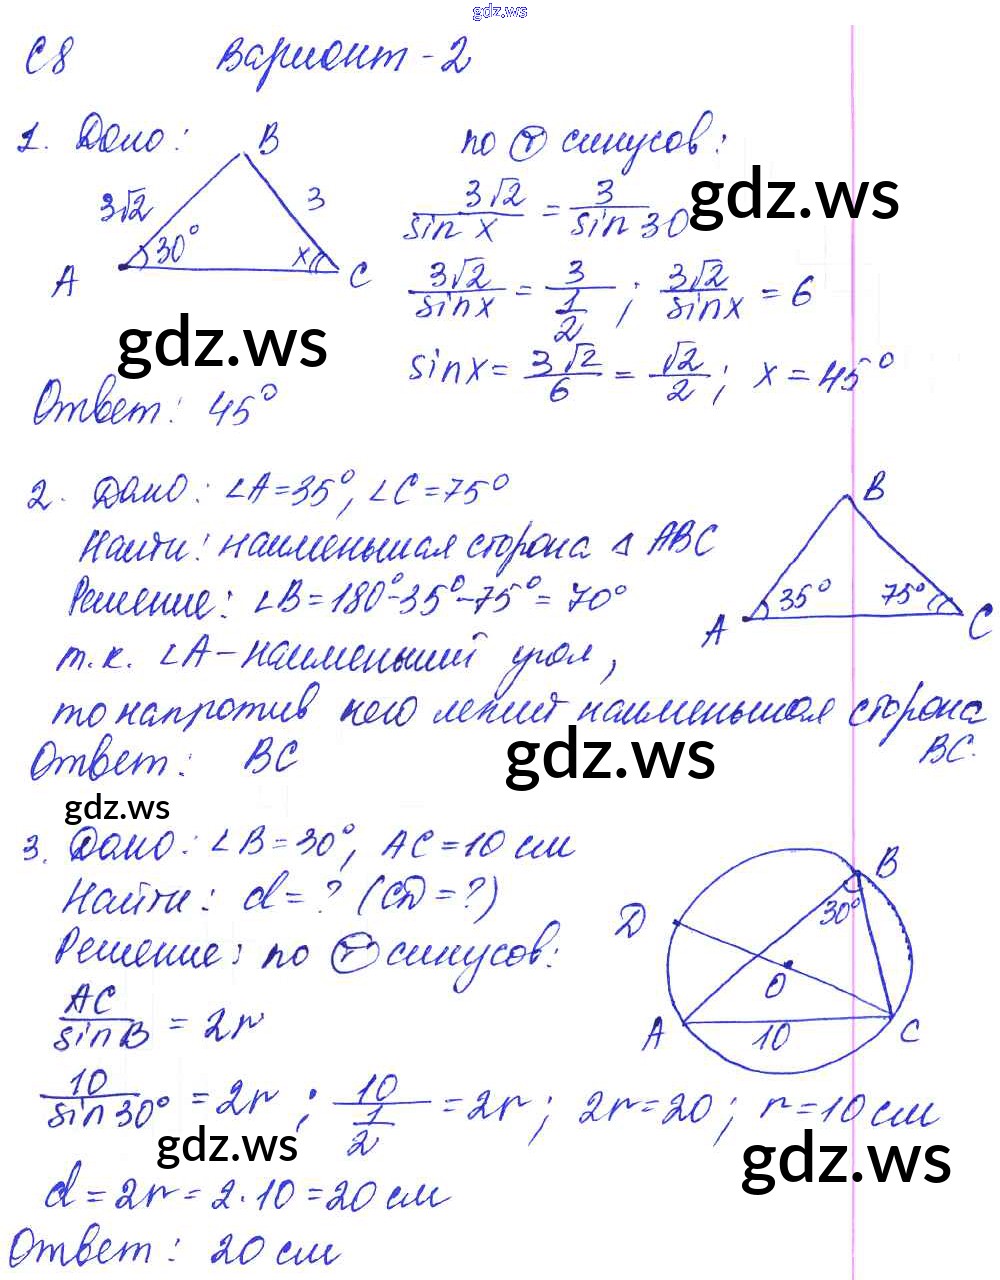 gdz.ws
С8 Вариант - 2
1. Дано: B по (т) синусов:
3√2 3 3√2/sin x = 3/sin 30 gdz.ws
A 30° x C 3√2/sin x = 3/(1/2); 3√2/sin x = 6
gdz.ws sin x = 3√2/6 = √2/2; x = 45°
Ответ: 45°
2. Дано: ∠A = 35°, ∠C = 75° B
Найти: наименьшая сторона △ ABC
Решение: ∠B = 180° - 35° - 75° = 70° A 35° 75° C
т.к. ∠A - наименьший угол,
то напротив него лежит наименьшая сторона
BC.
Ответ: BC gdz.ws
gdz.ws
3. Дано: ∠B = 30°, AC = 10 см B
Найти: d = ? (CD = ?) D 30°
Решение: по (т) синусов: O
AC/sin B = 2r A 10 C
10/sin 30° = 2r; 10/(1/2) = 2r; 2r = 20; r = 10 см
gdz.ws gdz.ws
d = 2r = 2 · 10 = 20 см
Ответ: 20 см